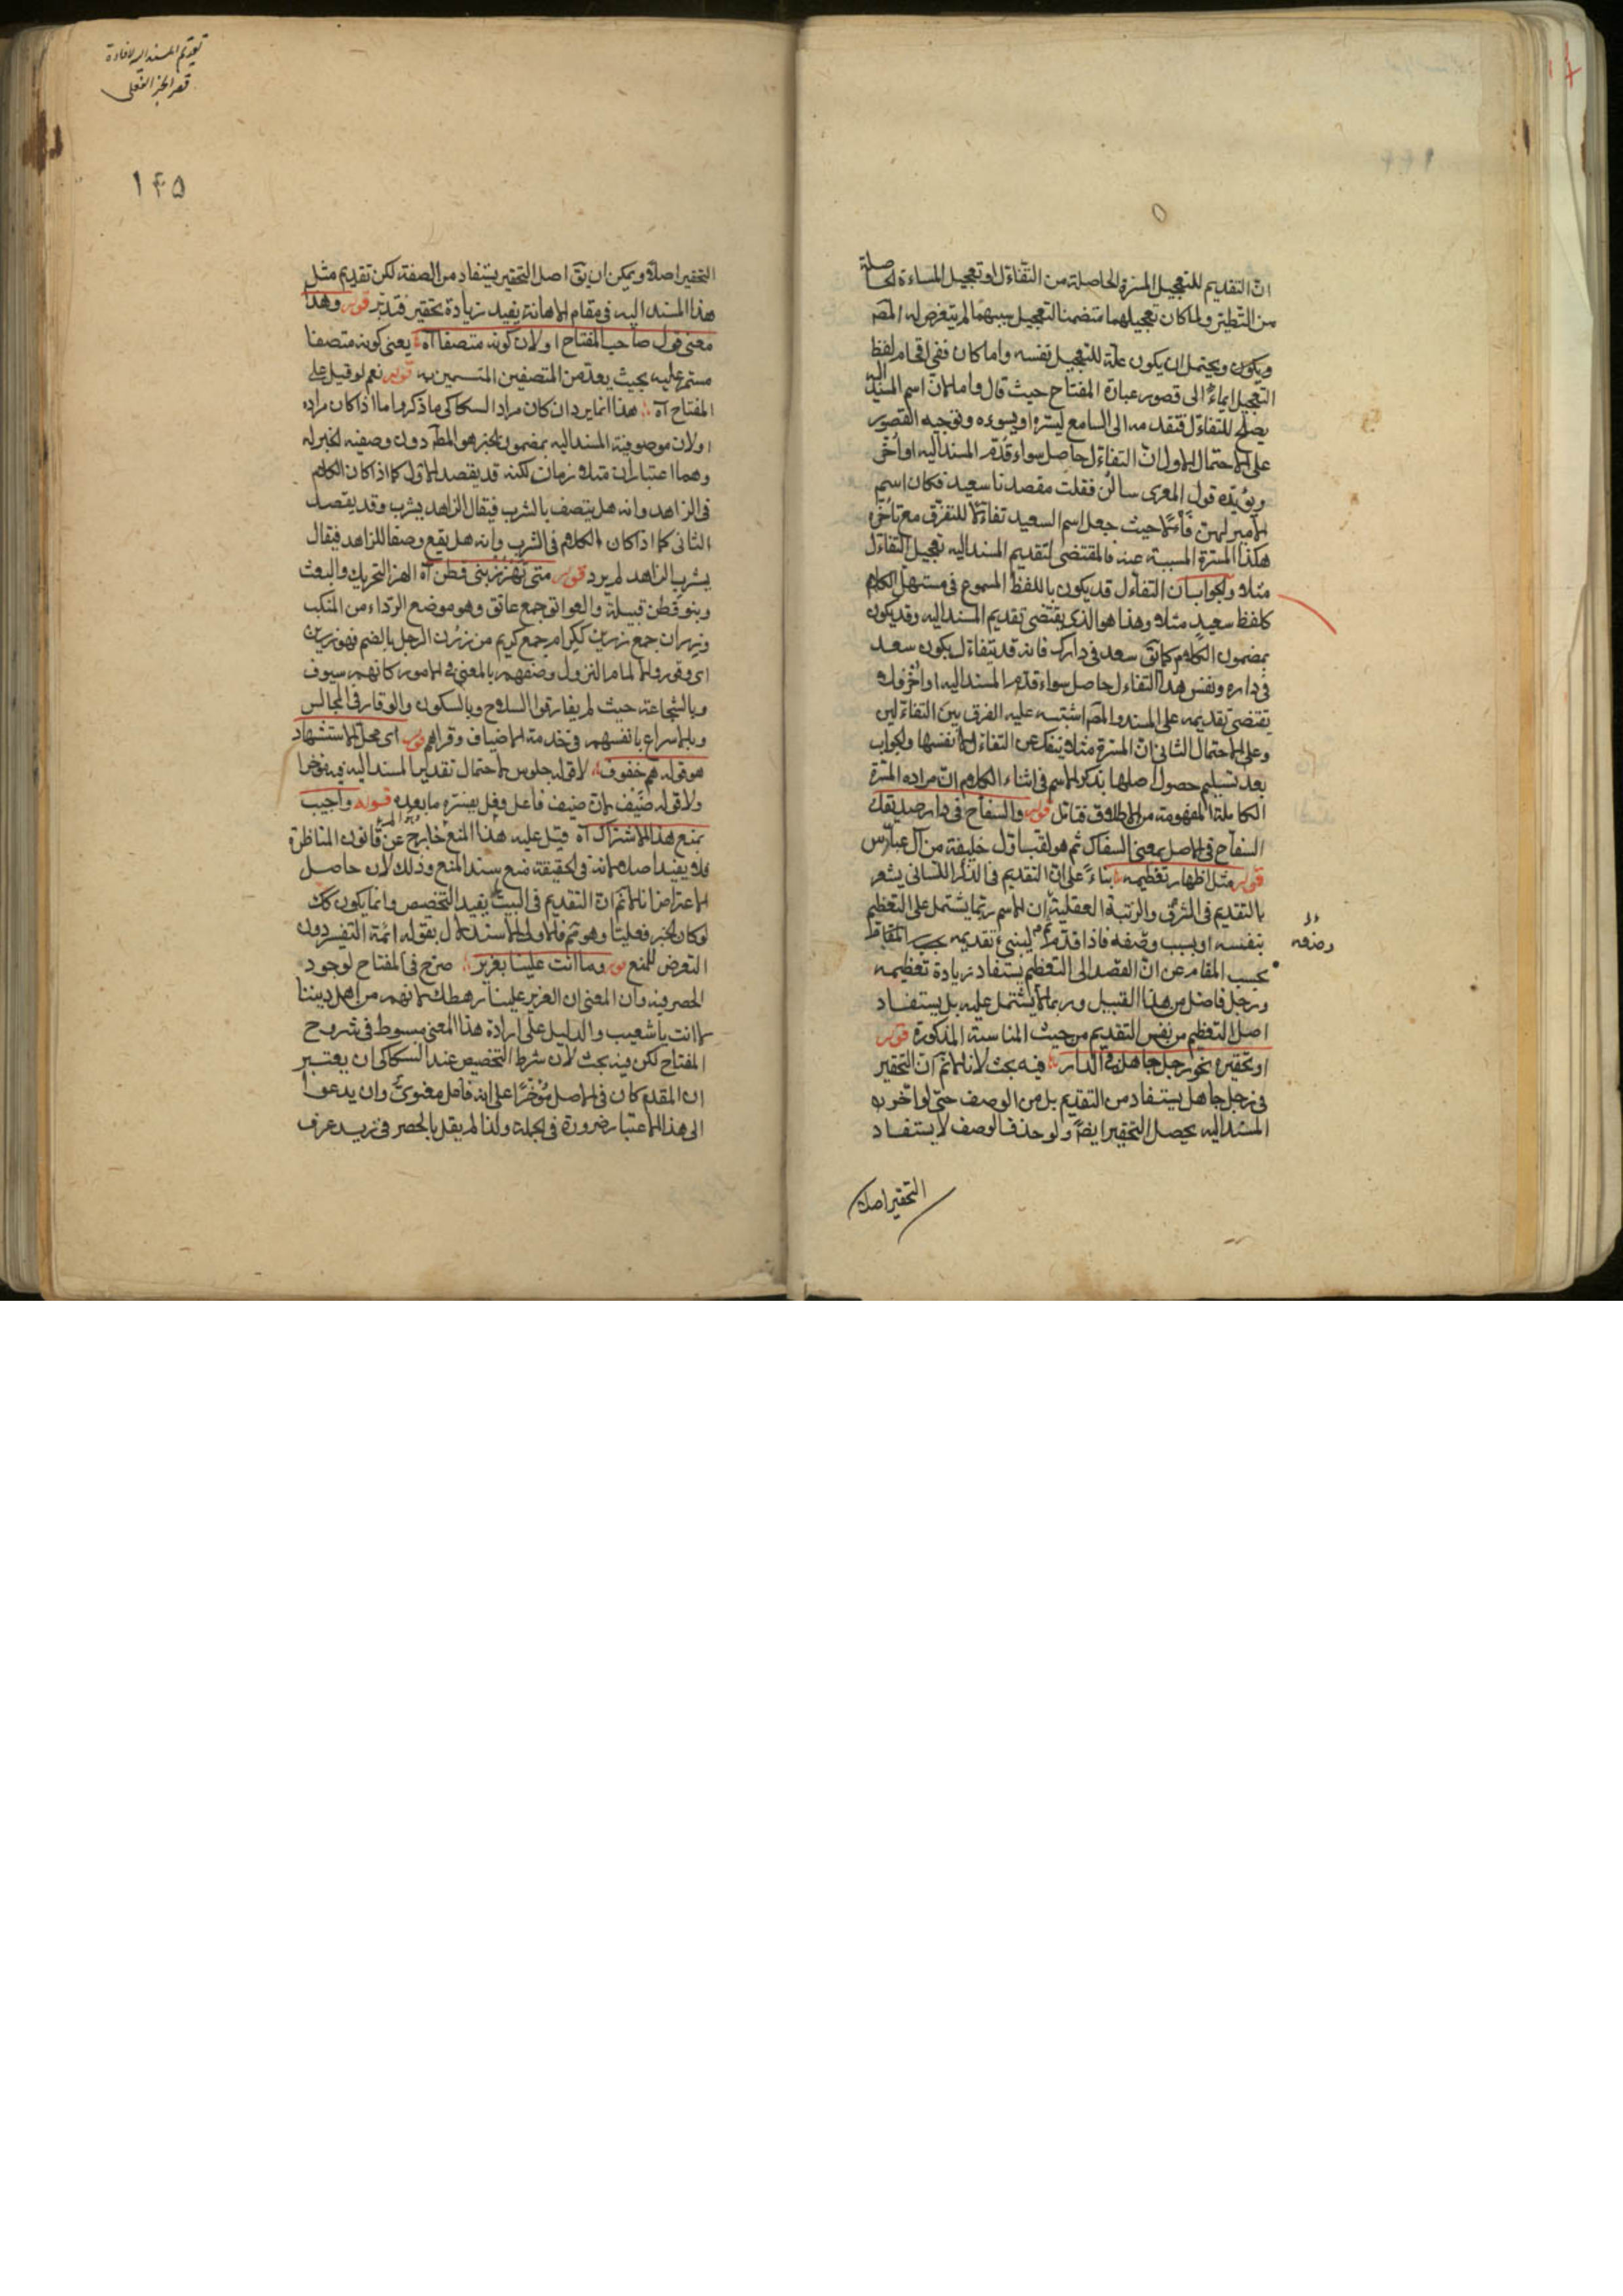 انّ التقديم للتعجيل المسرّة الحاصلة من التفاؤل او تعجيل المساءة الحاصلة
من التطير ولما كان تعجيلهما متضمنا لتعجيل سببهما لم يتعرض له المص
ويكون ويحتمل ان يكون علة للتعجيل نفسه واما كان ففي اقحام لفظ
التعجيل ايماء الى قصور عبارة المفتاح حيث قال واما لانّ اسم المسند اليه
يصلح للتفاؤل فتقدمه الى السامع ليسرّه او يسوءه وتوجيه القصور
على الاحتمال الاول انّ التفاؤل حاصل سواء قدّم المسند اليه او اخّر
ويؤيده قول المعري سألن فقلت مقصدنا سعيد فكان اسم
الامير لهن فألا حيث جعل اسم السعيد تفاؤلا مع تأخره
هكذا المسرة المسببة عنه فالمقتضى لتقديم المسند اليه تعجيل التفاؤل
مثلا والجواب ان التفاؤل قد يكون باللفظ المسموع في مستهل الكلام
كلفظ سعيد مثلا وهذا هو الذي يقتضى تقديم المسند اليه وقد يكون
بمضمون الكلام كما يق سعد في دارك فانه قد يتفاءل بكون سعد
في داره ونفس هذا التفاؤل حاصل سواء قدّم المسند اليه او اخّر فلا
يقتضى تقديمه على المسند والمص اشتبه عليه الفرق بين التفاؤلين
وعلى الاحتمال الثاني انّ المسرة مثلا تنفك عن التفاؤل لا نفسها والجواب
بعد تسليم حصول اصلها بذكر الاسم في اثناء الكلام انّ مراده المسرّة
الكاملة المفهومة من الاطلاق فتأمل قوله والسفاح في دار صديقك
السفاح في الاصل بمعنى السفاك ثم هو لقب اول خليفة من آل عباس
قوله مثل اظهار تعظيمه بناءً على ان التقديم في الذكر اللساني يشعر
بالتقديم في الشرف والرتبة العقلية ان الاسم ربما يشتمل على التعظيم
بنفسه او بسبب وصفه فاذا قدّم ينبئ تقديمه
بحسب المقام عن انّ القصد الى التعظيم يستفاد زيادة تعظيمه
ورجل فاضل من هذا القبيل وربما لا يشتمل عليه بل يستفاد
اصل التعظيم من نفس التقديم من حيث المناسبة المذكورة قوله
او تحقيره نحو رجل جاهل في الدار فيه بحث لانا لا نم ان التحقير
في رجل جاهل يستفاد من التقديم بل من الوصف حتى لو اخّر
المسند اليه يحصل التحقير ايضا ولو حذف الوصف لا يستفاد
التحقير اصلا
تقديم المسند اليه لافادة
قصر الخبر الفعلى
١٤٥
التحقير اصلا ويمكن ان يق اصل التحقير يستفاد من الصفة لكن تقديم مثل
هذا المسند اليه في مقام الاهانة يفيد زيادة تحقير فتدبر قوله وهذا
معنى قول صاحب المفتاح او لان كونه متصفا آه يعنى كونه متصفا
مستمرا عليه بحيث يعدّ من المتصفين المتسمين به قوله نعم لو قيل على
المفتاح آه هذا انما يرد ان كان مراد السكاكى ما ذكر واما اذا كان مراده
او لان موصوفية المسند اليه بمضمون الخبر هو المط دون وصفية الخبر له
وهما اعتباران متلازمان لكنه قد يقصد الاول كما اذا كان الكلام
في الزاهد وانه هل يتصف بالشرب فيقال الزاهد يشرب وقد يقصد
الثاني كما اذا كان الكلام في الشرب وانه هل يقع وصفا للزاهد فيقال
يشرب الزاهد لم يرد قوله متى تهزز بنى قطن آه الهز التحريك والبعث
وبنو قطن قبيلة والعواتق جمع عاتق وهو موضع الرداء من المنكب
ورزان جمع رزين ككرام جمع كريم من رزُن الرجل بالضم فهو رزين
اى وقور والالمام النزول وصفهم بالمعنى في الامور كانهم سيوف
وبالشجاعة حيث لم يفارقوا السلاح وبالسكون والوقار في المجالس
وبالاسراع بانفسهم في خدمة الاضياف وقراهم قوله اى محل الاستشهاد
هو قوله هم خفوف لا قوله جلوس لاحتمال تقدير المسند اليه فيه مؤخرا
ولا قوله ضيف لان ضيف فاعل فعل يفسره ما بعده قوله واجيب
بمنع هذا الاشتراك آه قيل عليه هذا المنع خارج عن قانون المناظرة
فلا يفيد اصلا لانه في الحقيقة منع سند المنع وذلك لان حاصل
الاعتراض انا لا نم ان التقديم في البيت يفيد التخصيص وانما يكون كك
لو كان الخبر فعليا وهو ثم فالاولى الاستدلال بقوله ائمة التفسير دون
التعرض للمنع قوله وما انت علينا بعزيز صرح في المفتاح لوجود
الحصر فيه وان المعنى ان العزيز علينا رهطك لانهم من اهل ديننا
لا انت يا شعيب والدليل على ارادة هذا المعنى مبسوط في شروح
المفتاح لكن فيه بحث لان شرط التخصيص عند السكاكى ان يعتبر
ان المقدم كان في الاصل مؤخرا على انه فاعل معنوى وان يدعوا
الى هذا الاعتبار ضرورة في الجملة ولذا لم يقل بالحصر في زيد عرف